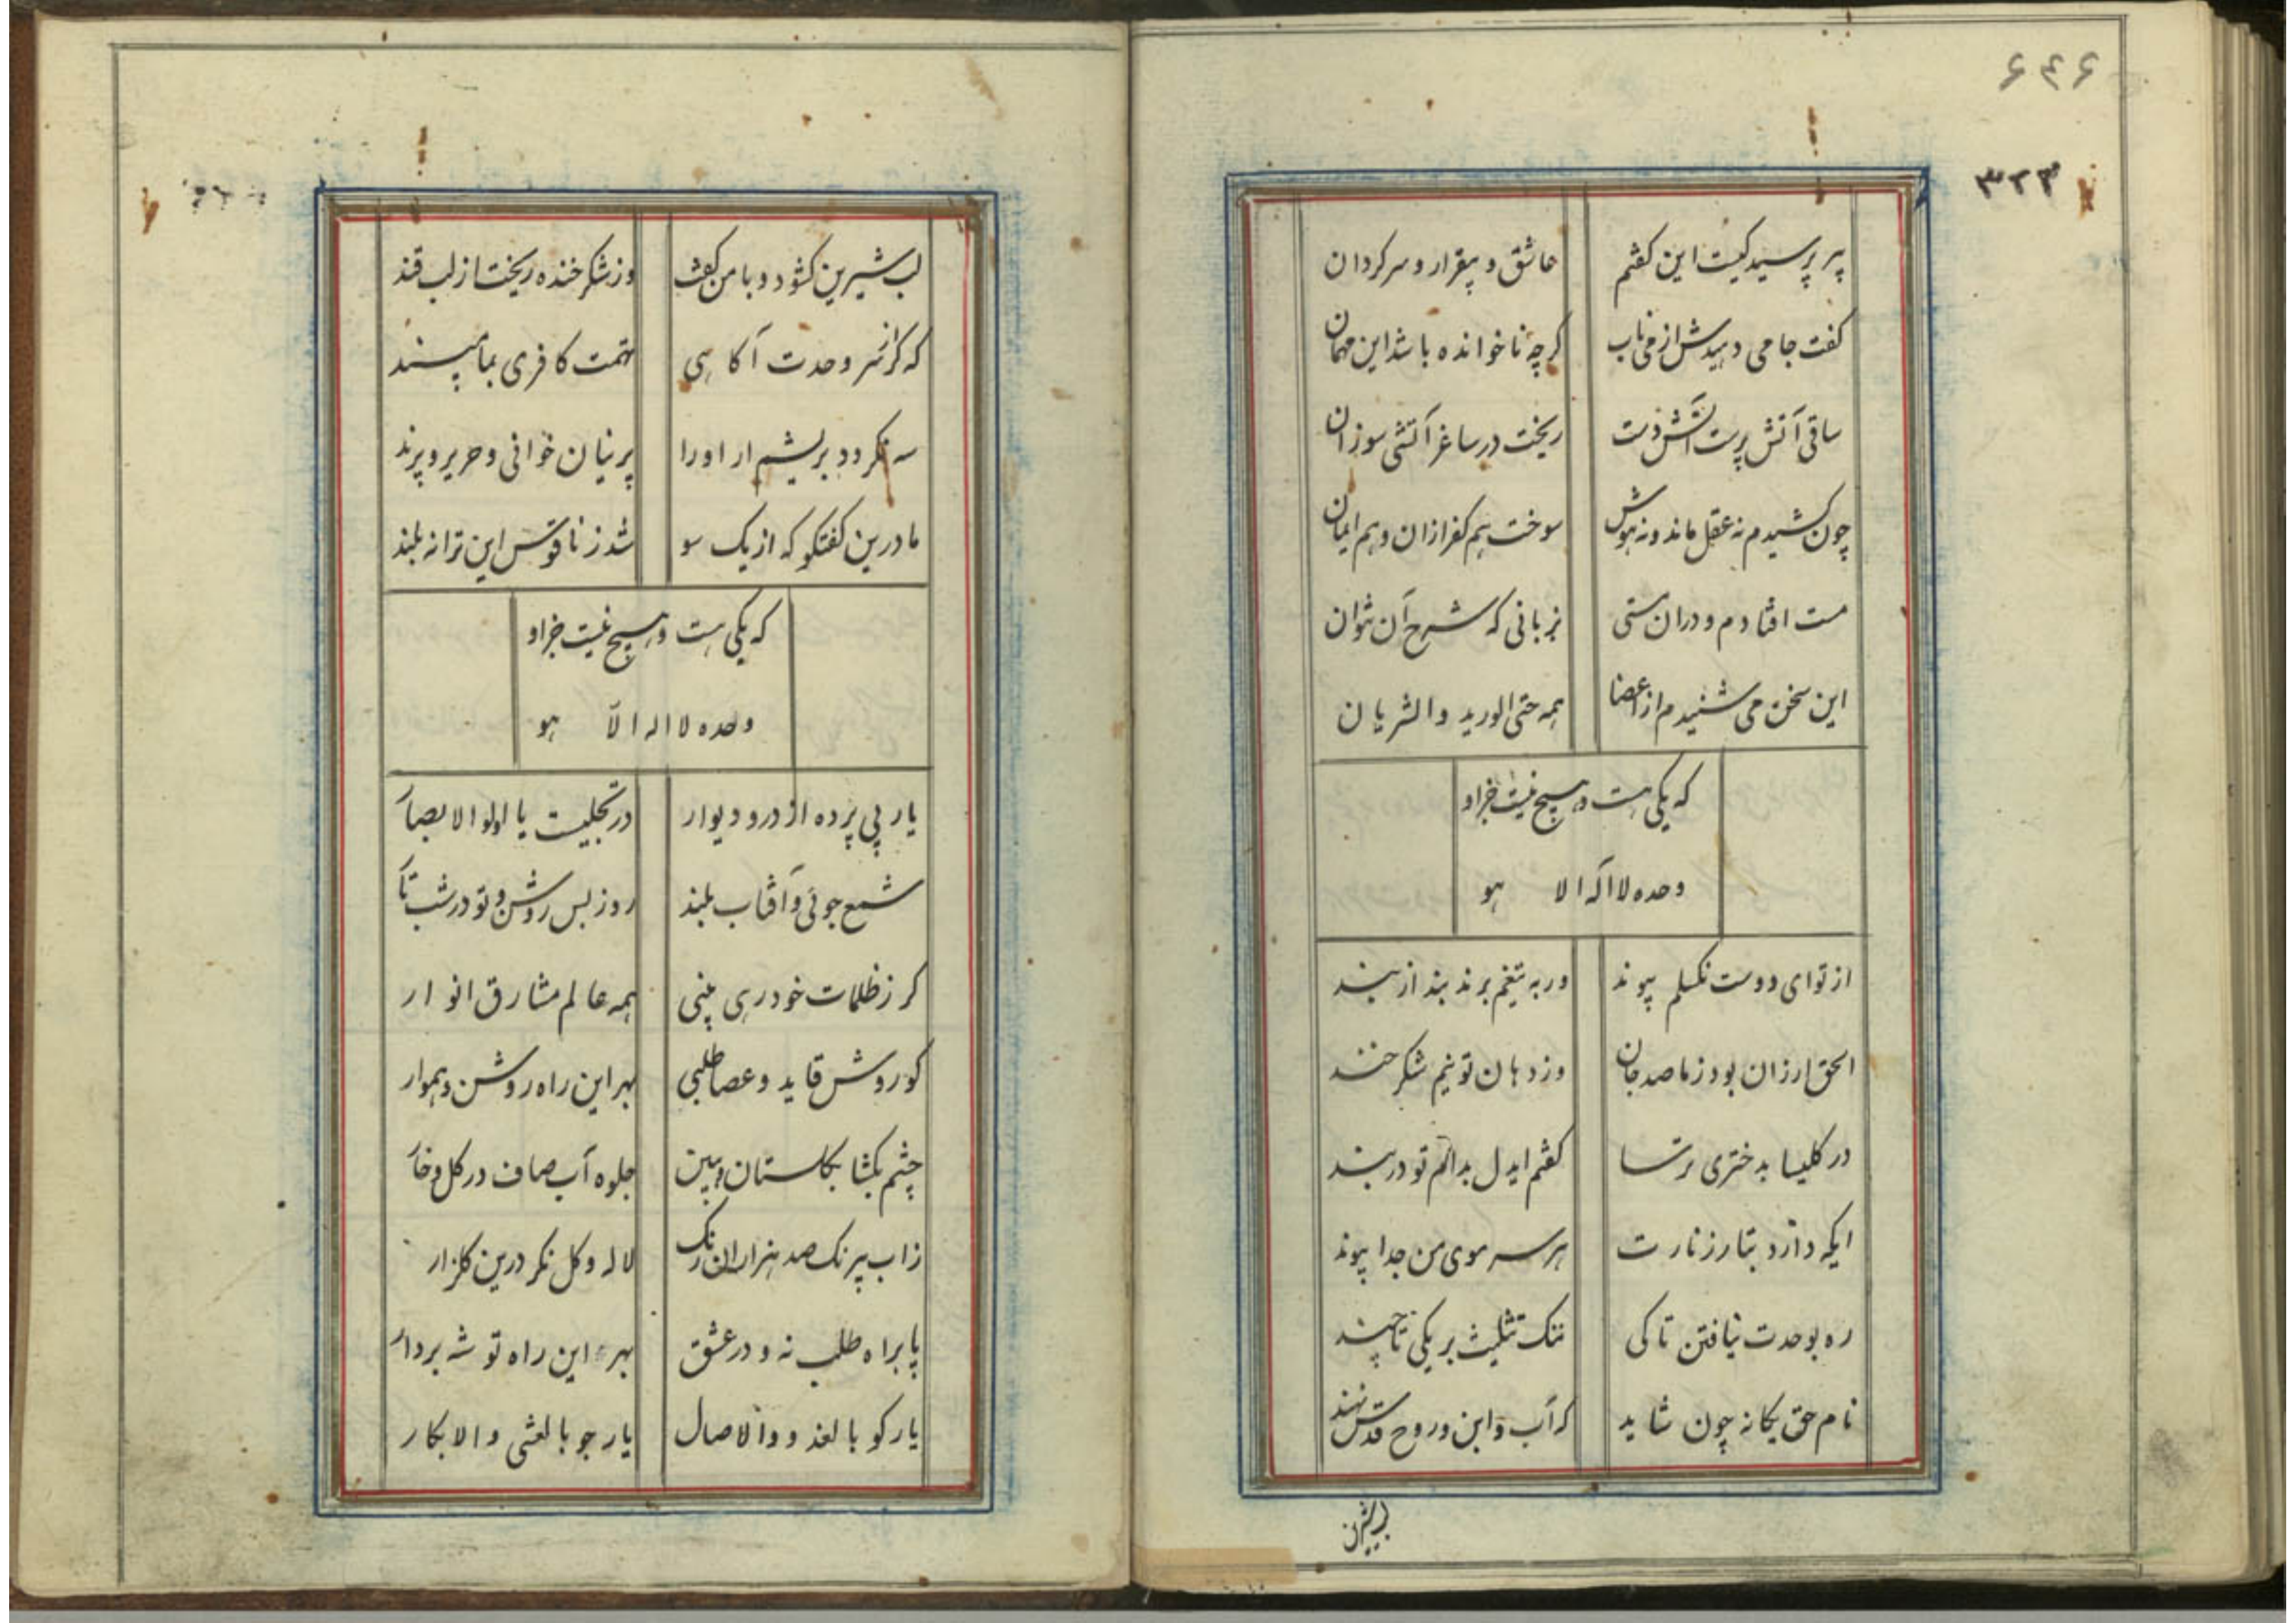 ۶۴۶
۳۲۳
پیر پرسید کیست این کفتم عاشق و بیقرار و سرکردان
کفت جامی دهیدش از می ناب کرچه ناخوانده باشد این مهمان
ساقی آتش پرست آتش دست ریخت در ساغر آتشی سوزان
چون کشیدم نه عقل ماند و نه هوش سوخت هم کفر ازان و هم ایمان
مست افتادم و دران مستی بزبانی که شرح آن نتوان
این سخن می شنیدم از اعضا همه حتی الورید والشریان
که یکی هست و هیچ نیست جزاو
وحده لا اله الا هو
از تو ای دوست نکسلم پیوند ور به تیغم برند بند از بند
الحق ارزان بود ز ما صد جان وز دهان تو نیم شکر خند
در کلیسا بدختری ترسا کفتم ایدل بدام تو در بند
ایکه دارد بتار زنارت هر سر موی من جدا پیوند
ره بوحدت نیافتن تا کی ننک تثلیث بر یکی تا چند
نام حق یکانه چون شاید که آب و ابن و روح قدس نهند
لب شیرین
لب شیرین کشود و با من کفت وز شکر خنده ریخت از لب قند
که کر از سر وحدت آکاهی تهمت کافری بما مپسند
سه نکردد بریشم ار اورا پرنیان خوانی و حریر و پرند
ما درین کفتکو که از یک سو شد ز ناقوس این ترانه بلند
که یکی هست و هیچ نیست جزاو
وحده لا اله الّا هو
یار بی پرده از در و دیوار در تجلیست یا اولو الابصار
شمع جوئی و آفتاب بلند روز بس روشن و تو در شب تار
کر ز ظلمات خود رهی بینی همه عالم مشارق انوار
کوروش قاید و عصا طلبی بهر این راه روشن و هموار
چشم بکشا بکلستان و ببین جلوه آب صاف در کل و خار
زاب بیرنک صد هزاران رنک لاله و کل نکر درین کلزار
پا براه طلب نه و در عشق بهر این راه توشه بردار
یار کو بالغدو والاصال یار جو بالعشی والابکار